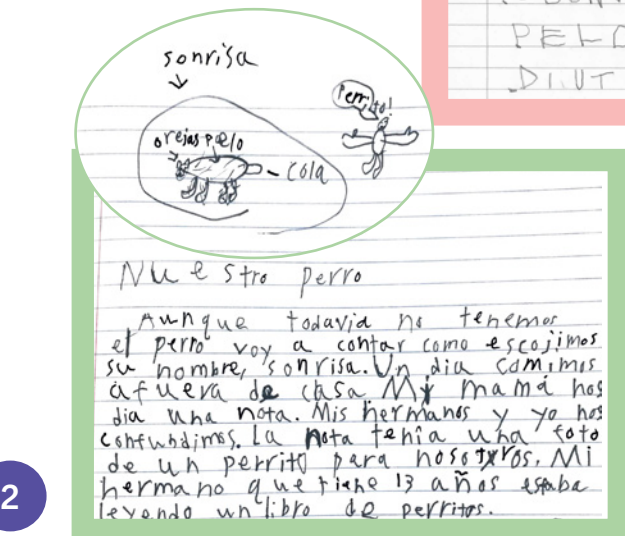 PELO
DI.UT
sonrisa
Perrito!
orejas pelo
cola
Nuestro perro
Aunque todavia no tenemos
el perro voy a contar como escojimos
su nombre, sonrisa. Un dia comimos
afuera de casa My mamá nos
dia una nota. Mis hermanos y yo nos
confundimos. La nota tenía una foto
de un perrito para nosotros. Mi
hermano que tiene 13 años estaba
leyendo un libro de perritos.
2